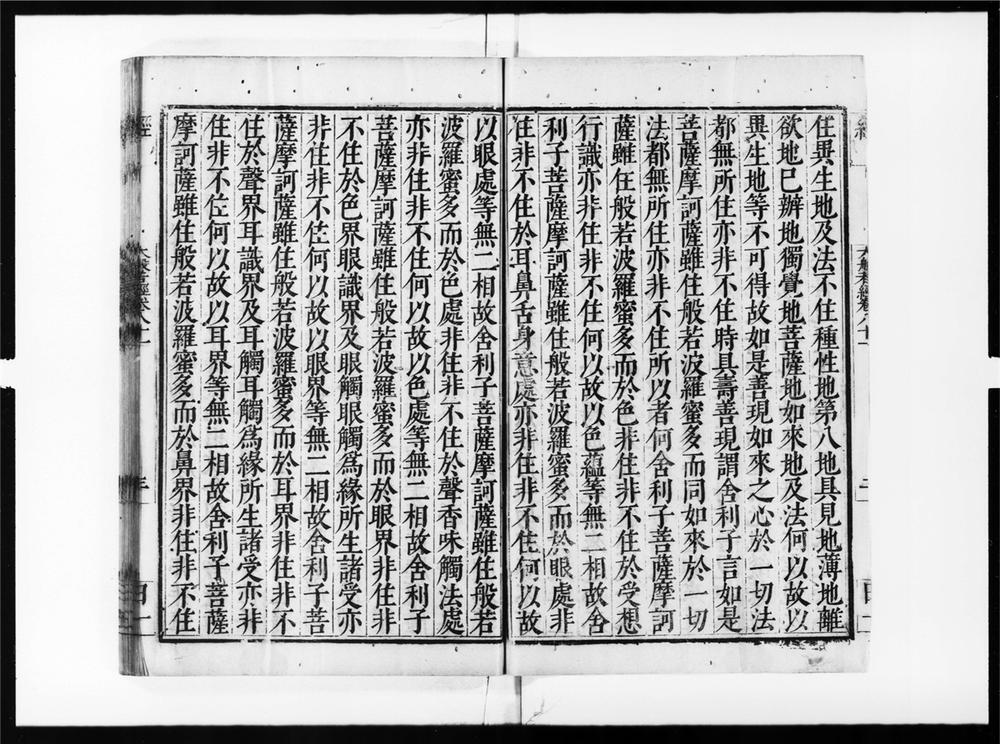 住異生地及法不住種性地第八地具見地薄地離
欲地已辦地獨覺地菩薩地如來地及法何以故以
異生地等不可得故如是善現如來之心於一切法
都無所住亦非不住時具壽善現謂舍利子言如是
菩薩摩訶薩雖住般若波羅蜜多而同如來於一切
法都無所住亦非不住所以者何舍利子菩薩摩訶
薩雖住般若波羅蜜多而於色非住非不住於受想
行識亦非住非不住何以故以色蘊等無二相故舍
利子菩薩摩訶薩雖住般若波羅蜜多而於眼處非
住非不住於耳鼻舌身意處亦非住非不住何以故
以眼處等無二相故舍利子菩薩摩訶薩雖住般若
波羅蜜多而於色處非住非不住於聲香味觸法處
亦非住非不住何以故以色處等無二相故舍利子
菩薩摩訶薩雖住般若波羅蜜多而於眼界非住非
不住於色界眼識界及眼觸眼觸爲緣所生諸受亦
非住非不住何以故以眼界等無二相故舍利子菩
薩摩訶薩雖住般若波羅蜜多而於耳界非住非不
住於聲界耳識界及耳觸耳觸爲緣所生諸受亦非
住非不住何以故以耳界等無二相故舍利子菩薩
摩訶薩雖住般若波羅蜜多而於鼻界非住非不住